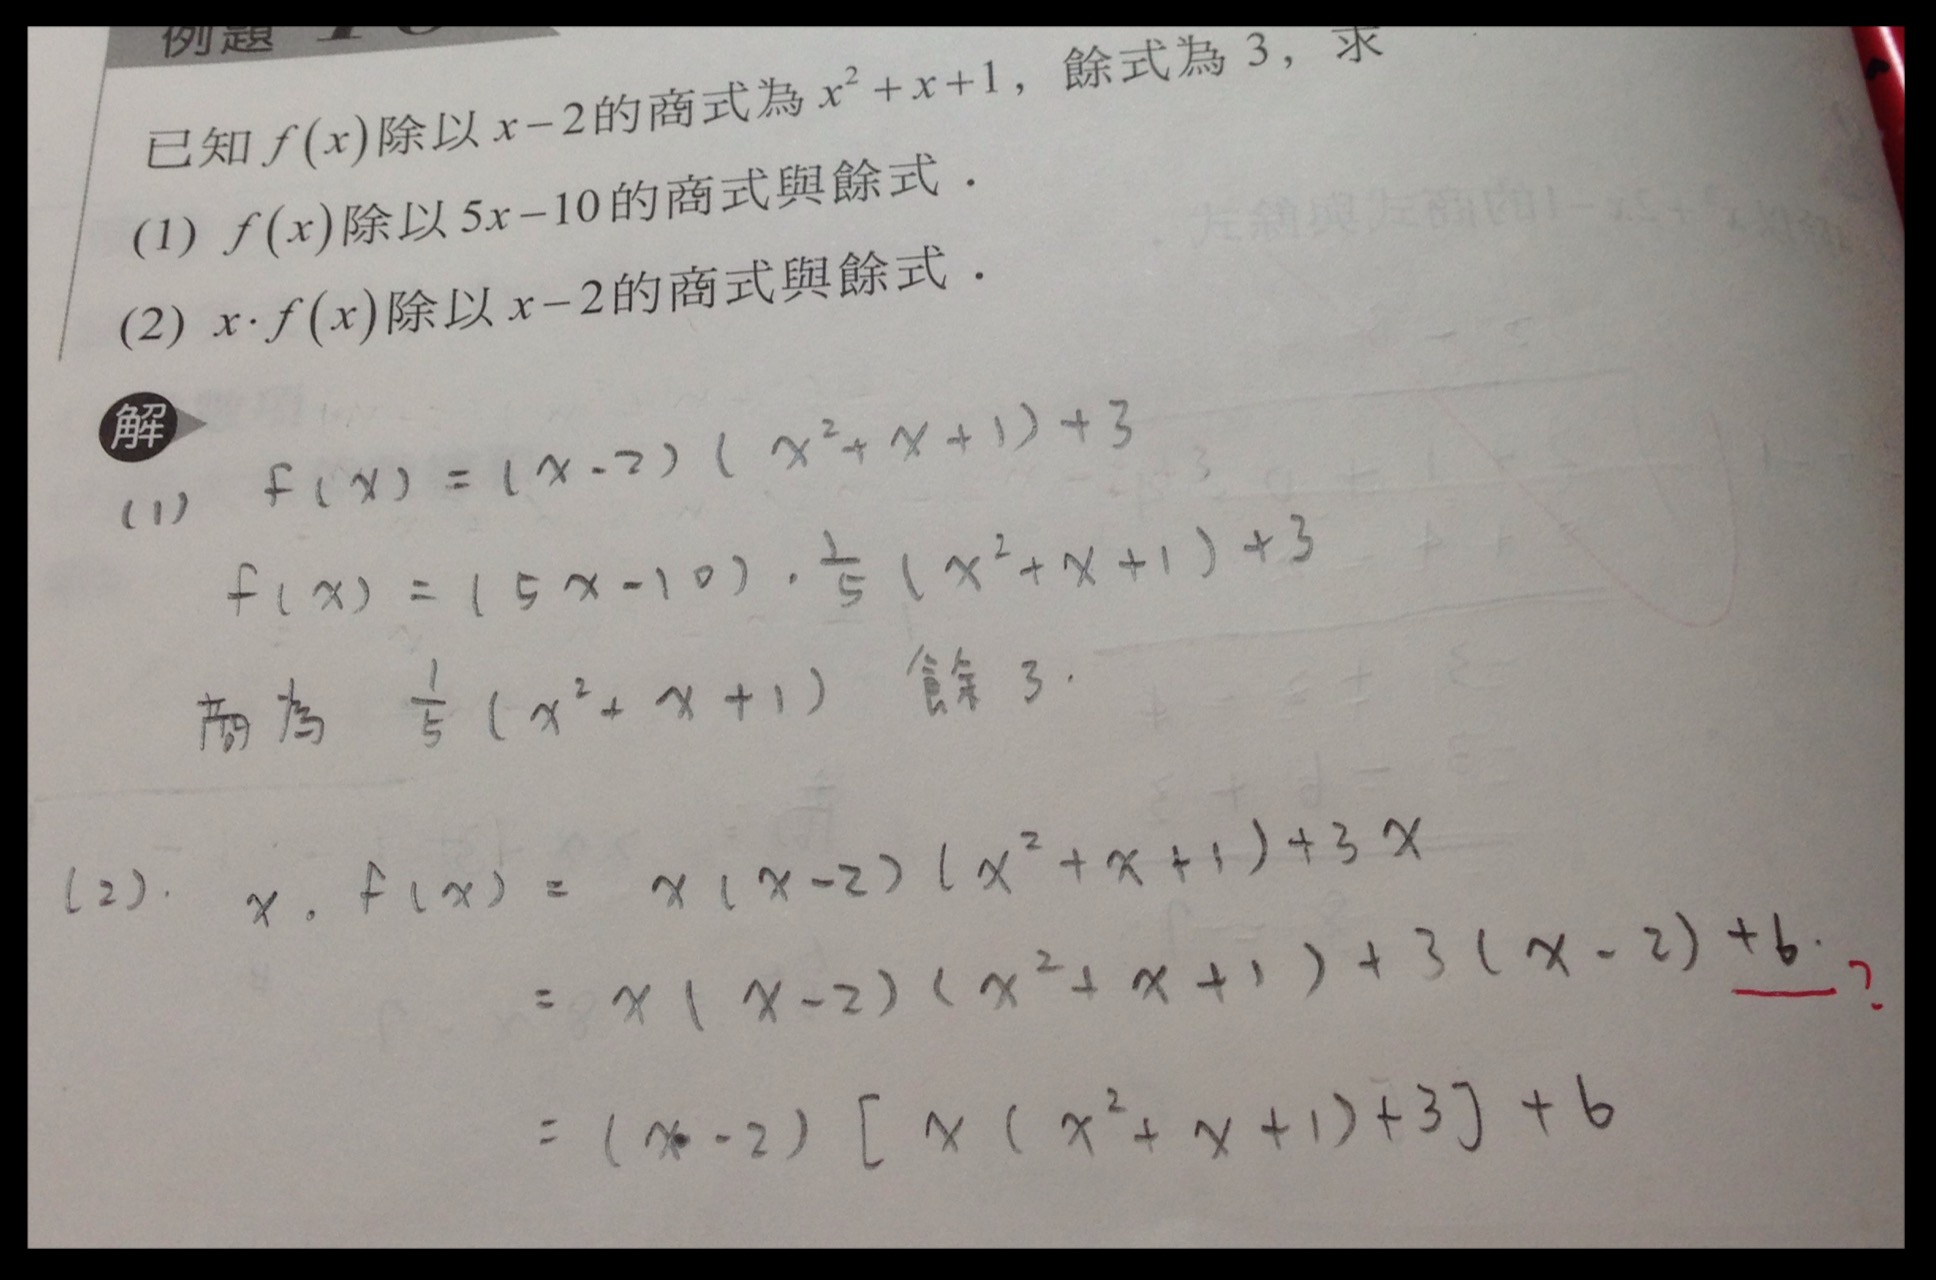 例題
已知 f(x)除以 x−2的商式為 x²+x+1，餘式為 3，求
(1) f(x)除以 5x−10的商式與餘式．
(2) x·f(x)除以 x−2的商式與餘式．
解
(1) f(x) = (x-2)(x²+x+1)+3
f(x) = (5x-10)·1/5(x²+x+1)+3
商為 1/5(x²+x+1) 餘 3.
(2). x.f(x) = x(x-2)(x²+x+1)+3x
= x(x-2)(x²+x+1)+3(x-2)+6.?
= (x-2)[x(x²+x+1)+3]+6